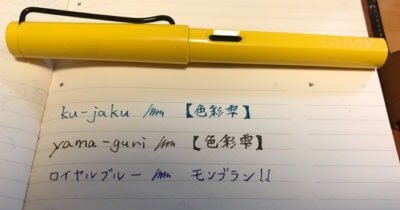 ku-jaku 【色彩雫】
yama-guri 【色彩雫】
ロイヤルブルー モンブラン!!